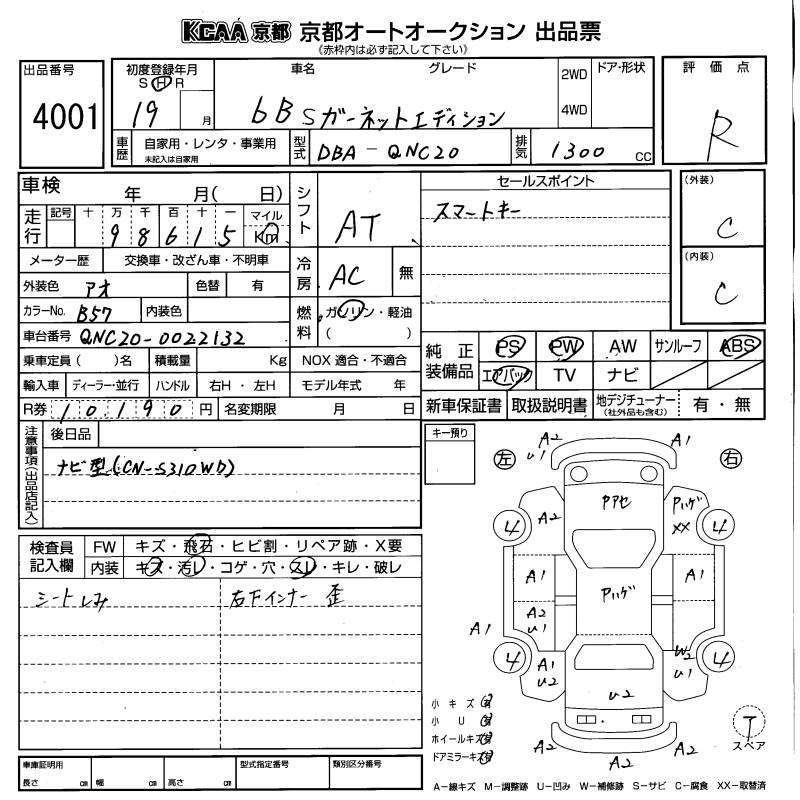 KCAA 京都 京都オートオークション 出品票
《赤枠内は必ず記入して下さい》
出品番号
4001
初度登録年月
S H R
19 月
車名
グレード
bB Sガーネットエディション
2WD
4WD
ドア・形状
評価点
R
車歴
自家用・レンタ・事業用
未記入は自家用
型式
DBA-QNC20
排気
1300 CC
車検 年 月( 日)
走行
記号 十 万 千 百 十 一 マイル
98615 Km
メーター歴 交換車・改ざん車・不明車
外装色 アオ 色替 有
カラーNo. B57 内装色
車台番号 QNC20-0022132
乗車定員( )名 積載量 Kg
輸入車 ディーラー・並行 ハンドル 右H・左H
R券 10,190 円 名変期限 月 日
シフト AT
冷房 AC 無
燃料 ガソリン・軽油
( )
NOX 適合・不適合
モデル年式 年
セールスポイント
スマートキー
(外装)
C
(内装)
C
純正装備品
PS PW AW サンルーフ ABS
エアバック TV ナビ
新車保証書 取扱説明書 地デジチューナー
(社外品も含む) 有・無
注意事項(出品店記入)
後日品
ナビ型(CN-S310WD)
キー預り
検査員記入欄
FW キズ・飛石・ヒビ割・リペア跡・X要
内装 キズ・汚レ・コゲ・穴・スレ・キレ・破レ
シートしみ
右下インナー 歪
左 右
A2
U1
A1
A2
Pアセ
Pハゲ
XX
4 4
A1
Pハゲ
A1
A2
U1
A1
4
A1
U2
W2
U1
4
U2
A2
A2
A2
小キズ 有
小U 有
ホイールキズ 有
ドアミラーキズ 有
T
スペア
A-線キズ M-調整跡 U-凹み W-補修跡 S-サビ C-腐食 XX-取替済
車庫証明用
長さ cm 幅 cm 高さ cm
型式指定番号
類別区分番号